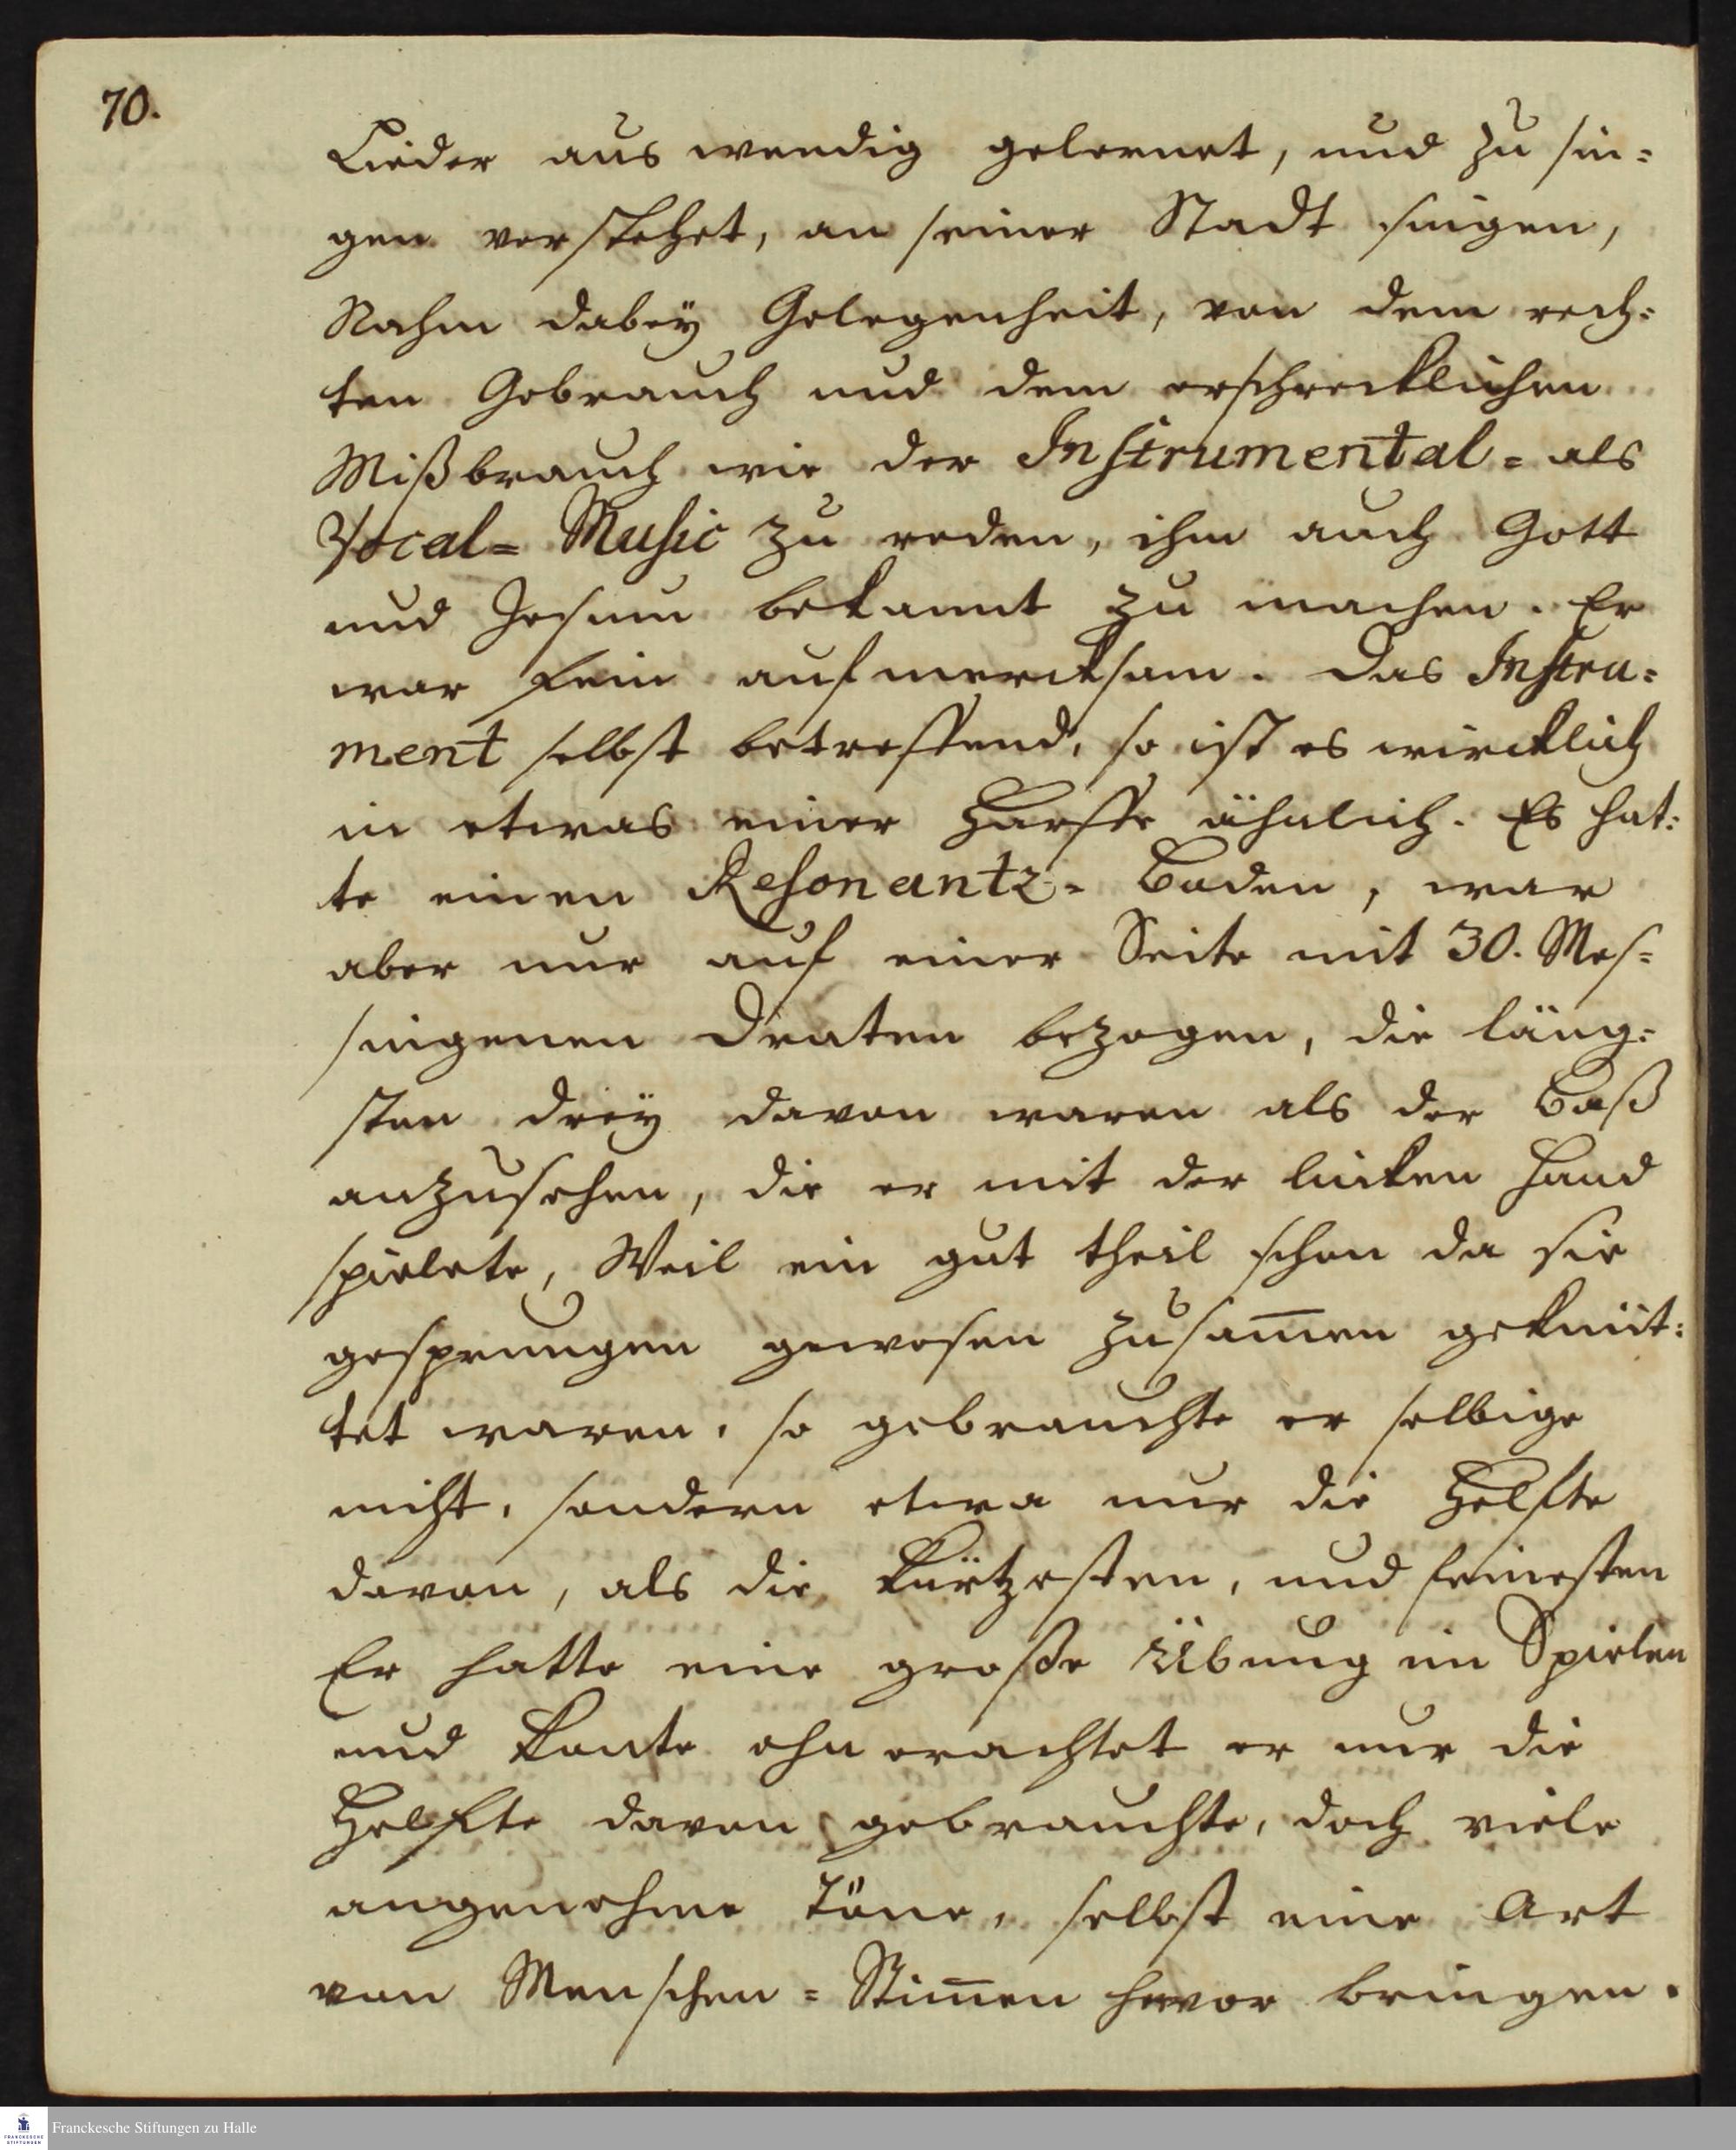 70.
Lieder aus wendig gelernet, und zu sin=
gen verstehet, an seiner Stadt singen,
Nahm dabey Gelegenheit, von dem rech=
ten Gebrauch und dem erschrecklichen
Mißbrauch wie der Instrumental= als
Vocal= Music zu reden, ihm auch Gott
und Jesum bekannt zu machen. Er
war fein aufmercksam. Das Instru=
ment selbst betreffend, so ist es wircklich
in etwas einer Harffe ähnlich. Es hat=
te einen Resonantz= Boden, war
aber nur auf einer Seite mit 30. Mes=
singenen Draten bezogen, die läng=
sten drey davon waren als der Baß
anzusehen, die er mit der lincken Hand
spielete, Weil ein gut theil schon da sie
gesprungen gewesen zusam̄en geknüt=
tet waren, so gebrauchte er selbige
nicht, sondern etwa nur die Helfte
davon, als die kürtzesten, und feinesten
Er hatte eine große Übung im Spielen
und konte ohnerachtet er nur die
Helfte davon gebrauchte, doch viele
angenehme Töne, selbst eine Art
von Menschen= Stim̄en hervor bringen.
Franckesche Stiftungen zu Halle
FRANCKESCHE
STIFTUNGEN